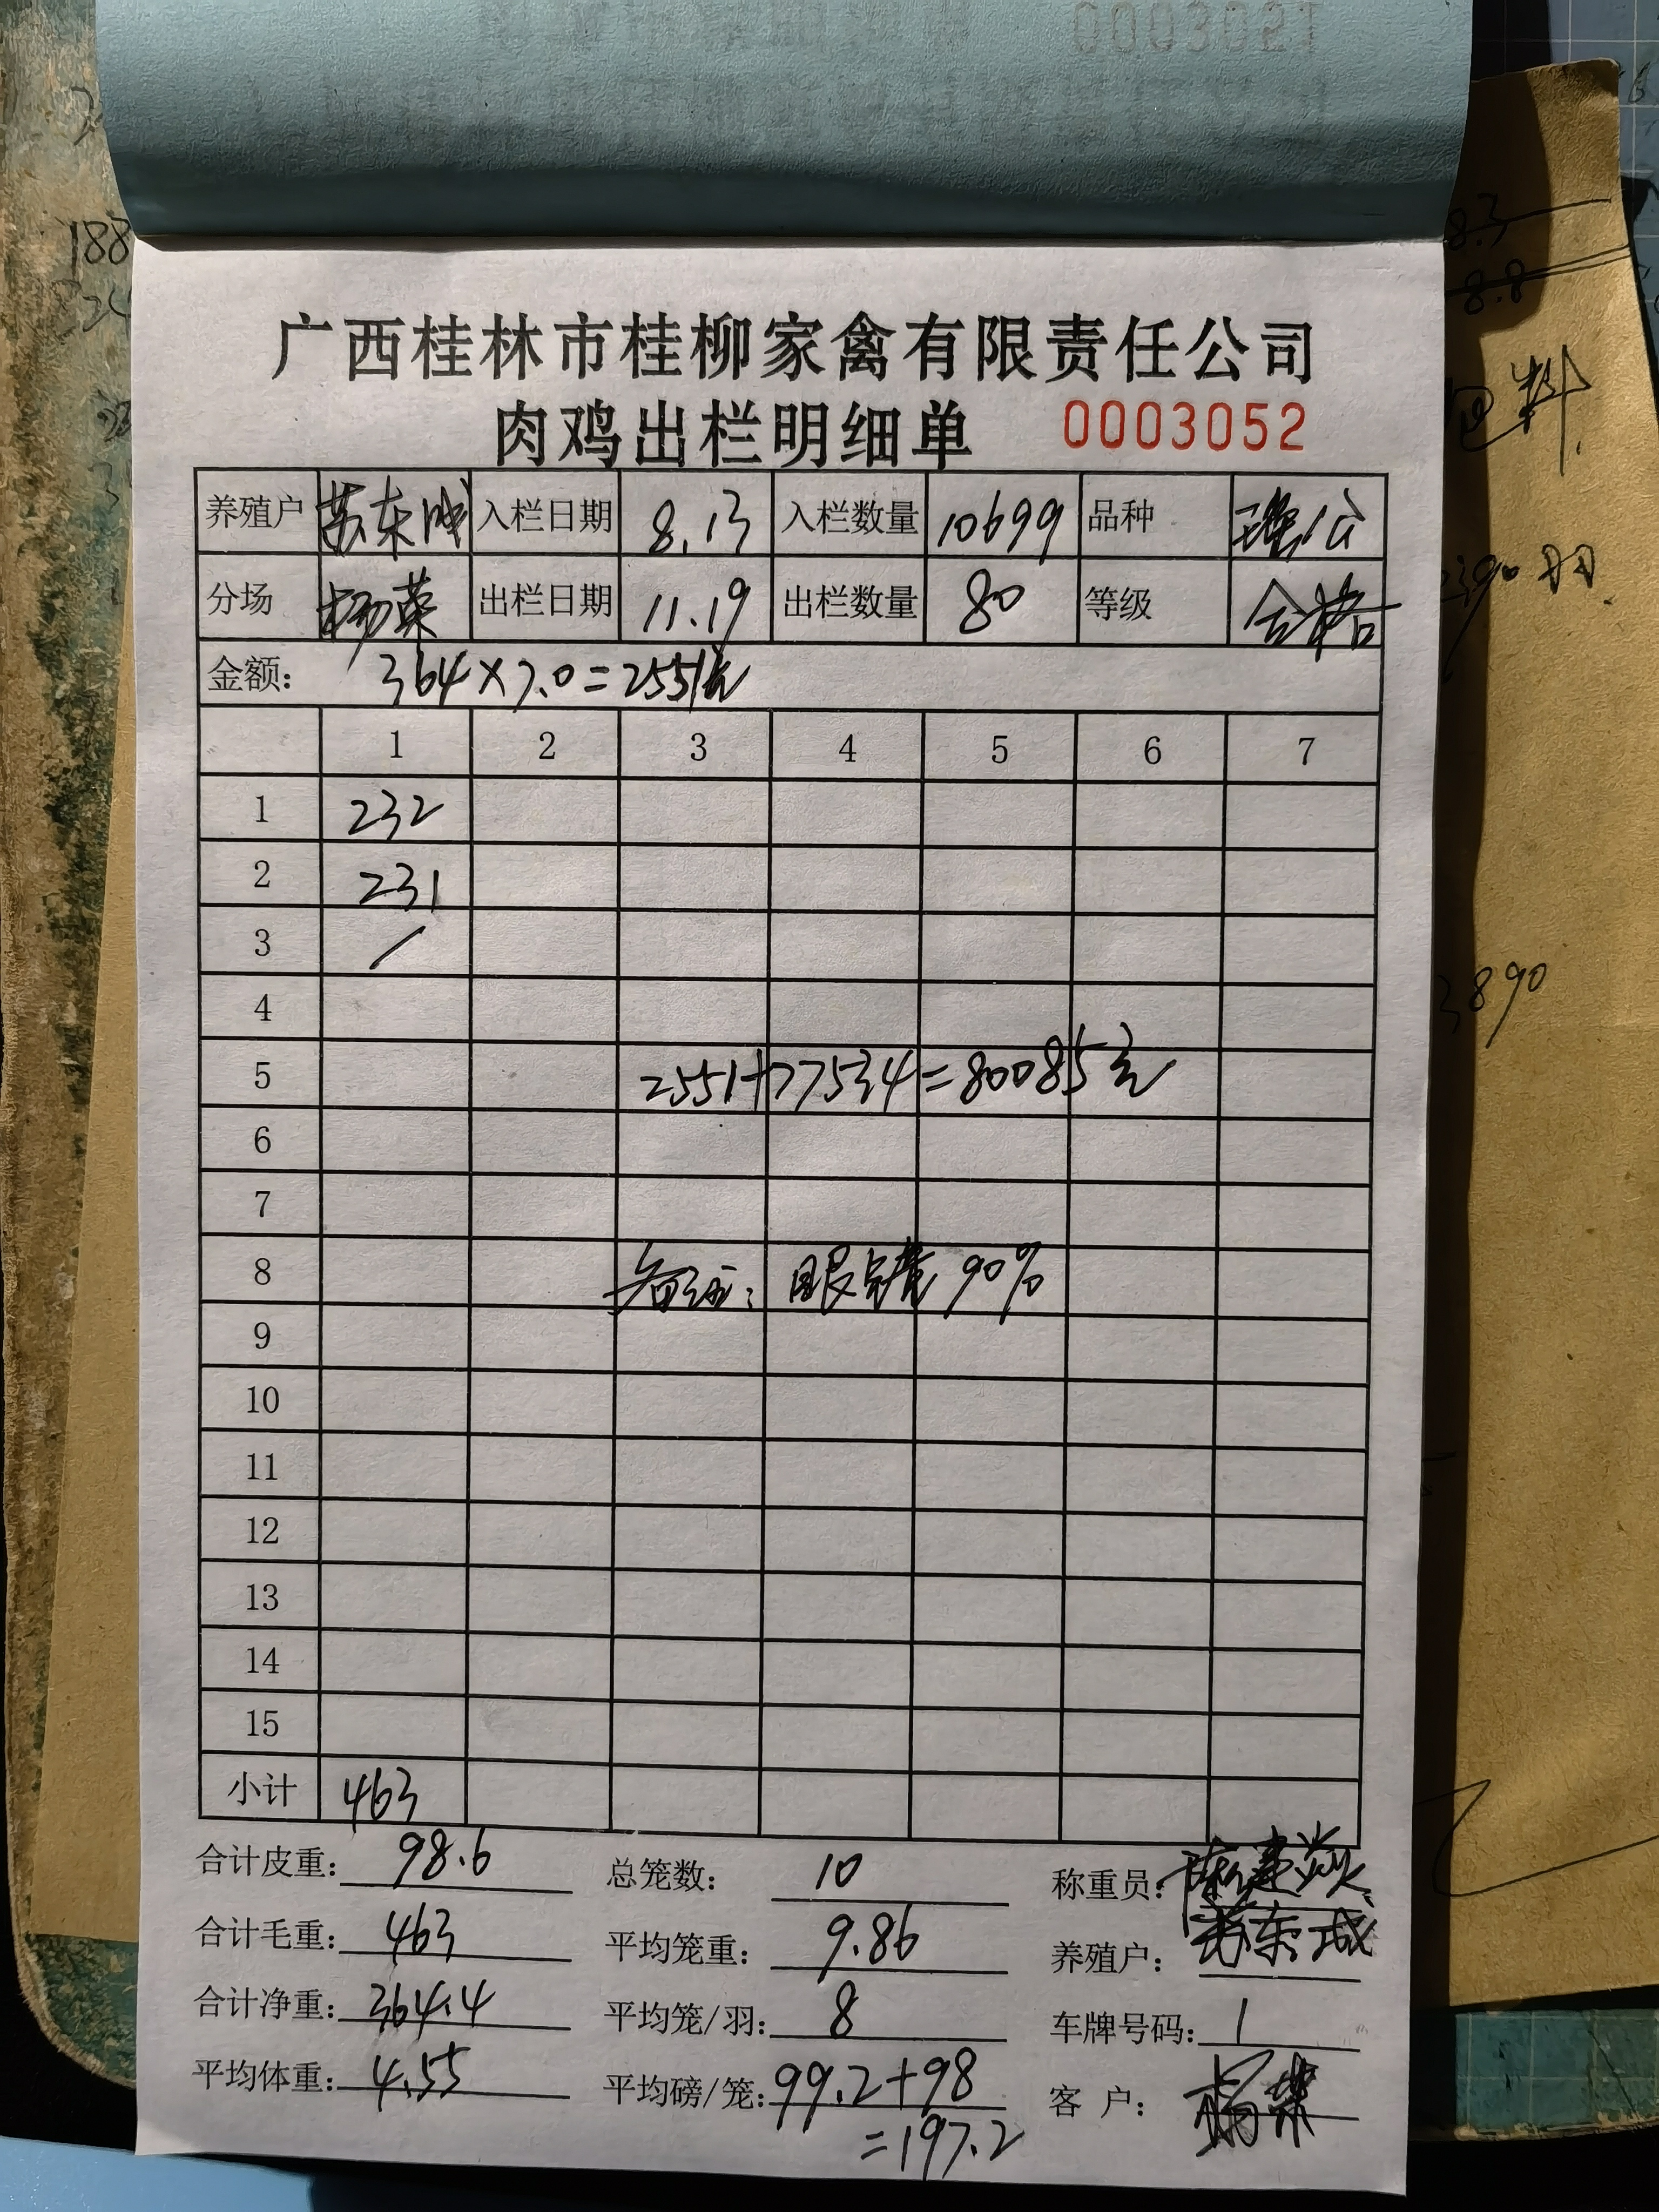 0003021
188
8.3
8.8
包料
2390羽
3890
广西桂林市桂柳家禽有限责任公司
肉鸡出栏明细单 0003052
养殖户 苏东成 入栏日期 8.13 入栏数量 10699 品种 瑶公
分场 杨荣 出栏日期 11.19 出栏数量 80 等级 合格
金额： 364×7.0=2551元
1 2 3 4 5 6 7
1 232
2 231
3 /
4
5 2551+77534=80085元
6
7
8 备注： 眼 90%
9
10
11
12
13
14
15
小计 463
合计皮重： 98.6 总笼数： 10 称重员： 陈建
合计毛重： 463 平均笼重： 9.86 养殖户： 苏东成
合计净重： 364.4 平均笼/羽： 8 车牌号码： 1
平均体重： 4.55 平均磅/笼： 99.2+98 客 户： 杨荣
=197.2